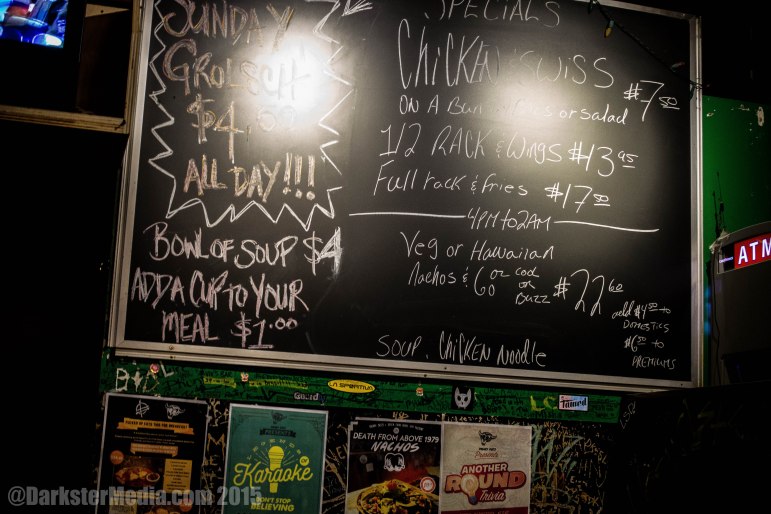 SUNDAY
GROLSCH
$4.00
ALL DAY!!!
BOWL OF SOUP $4
ADD A CUP TO YOUR
MEAL $1.00
SPECIALS
CHICKEN & SWISS
ON A Bun or Salad $7.50
1/2 RACK & Wings $13.95
Full rack & fries $17.50
4PM TO 2AM
Veg or Hawaiian
Nachos & 60 oz cod or Buzz $22.60
add $4.50 to
DOMESTICS
$6.50 to
PREMIUMS
SOUP. CHICKEN NOODLE
ATM
LA SPORTIVA
Tamed
PRESENTS
Karaoke
DON'T STOP
BELIEVING
DEATH FROM ABOVE 1979
NACHOS
Presents
ANOTHER
ROUND
Trivia
@DarksterMedia.com 2015